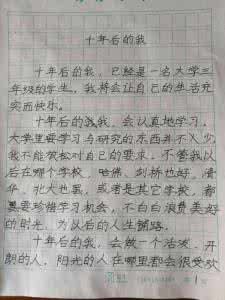 十年后的我
十年后的我，已经是一名大学三
年级的学生，我将会让自己的生活充
实而快乐。
十年后的我，会认真地学习。
大学里要学习与研究的东西并不少，
我不能放松对自己的要求，不管我以
后在哪个学校，哈佛、剑桥也好，清
华、北大也罢，或者是其它学校，都
要珍惜学习机会，不白白浪费美好
的时光，为以后的人生铺路。
十年后的我，会做一个活泼、开
朗的人，阳光的人在哪里都会很受欢